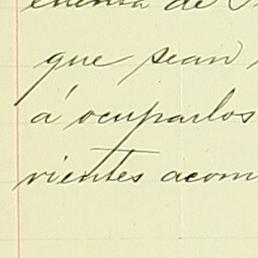 de
que sean
á ocuparlos
vientes acom